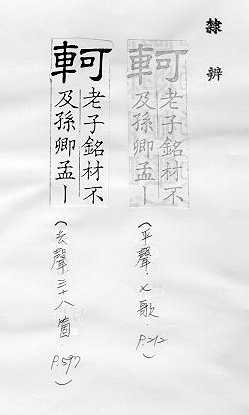 隸
辨
軻
老子銘材不
及孫卿孟丨
(平聲.七歌. P.212)
軻
老子銘材不
及孫卿孟丨
(去聲三十八箇 P.597)